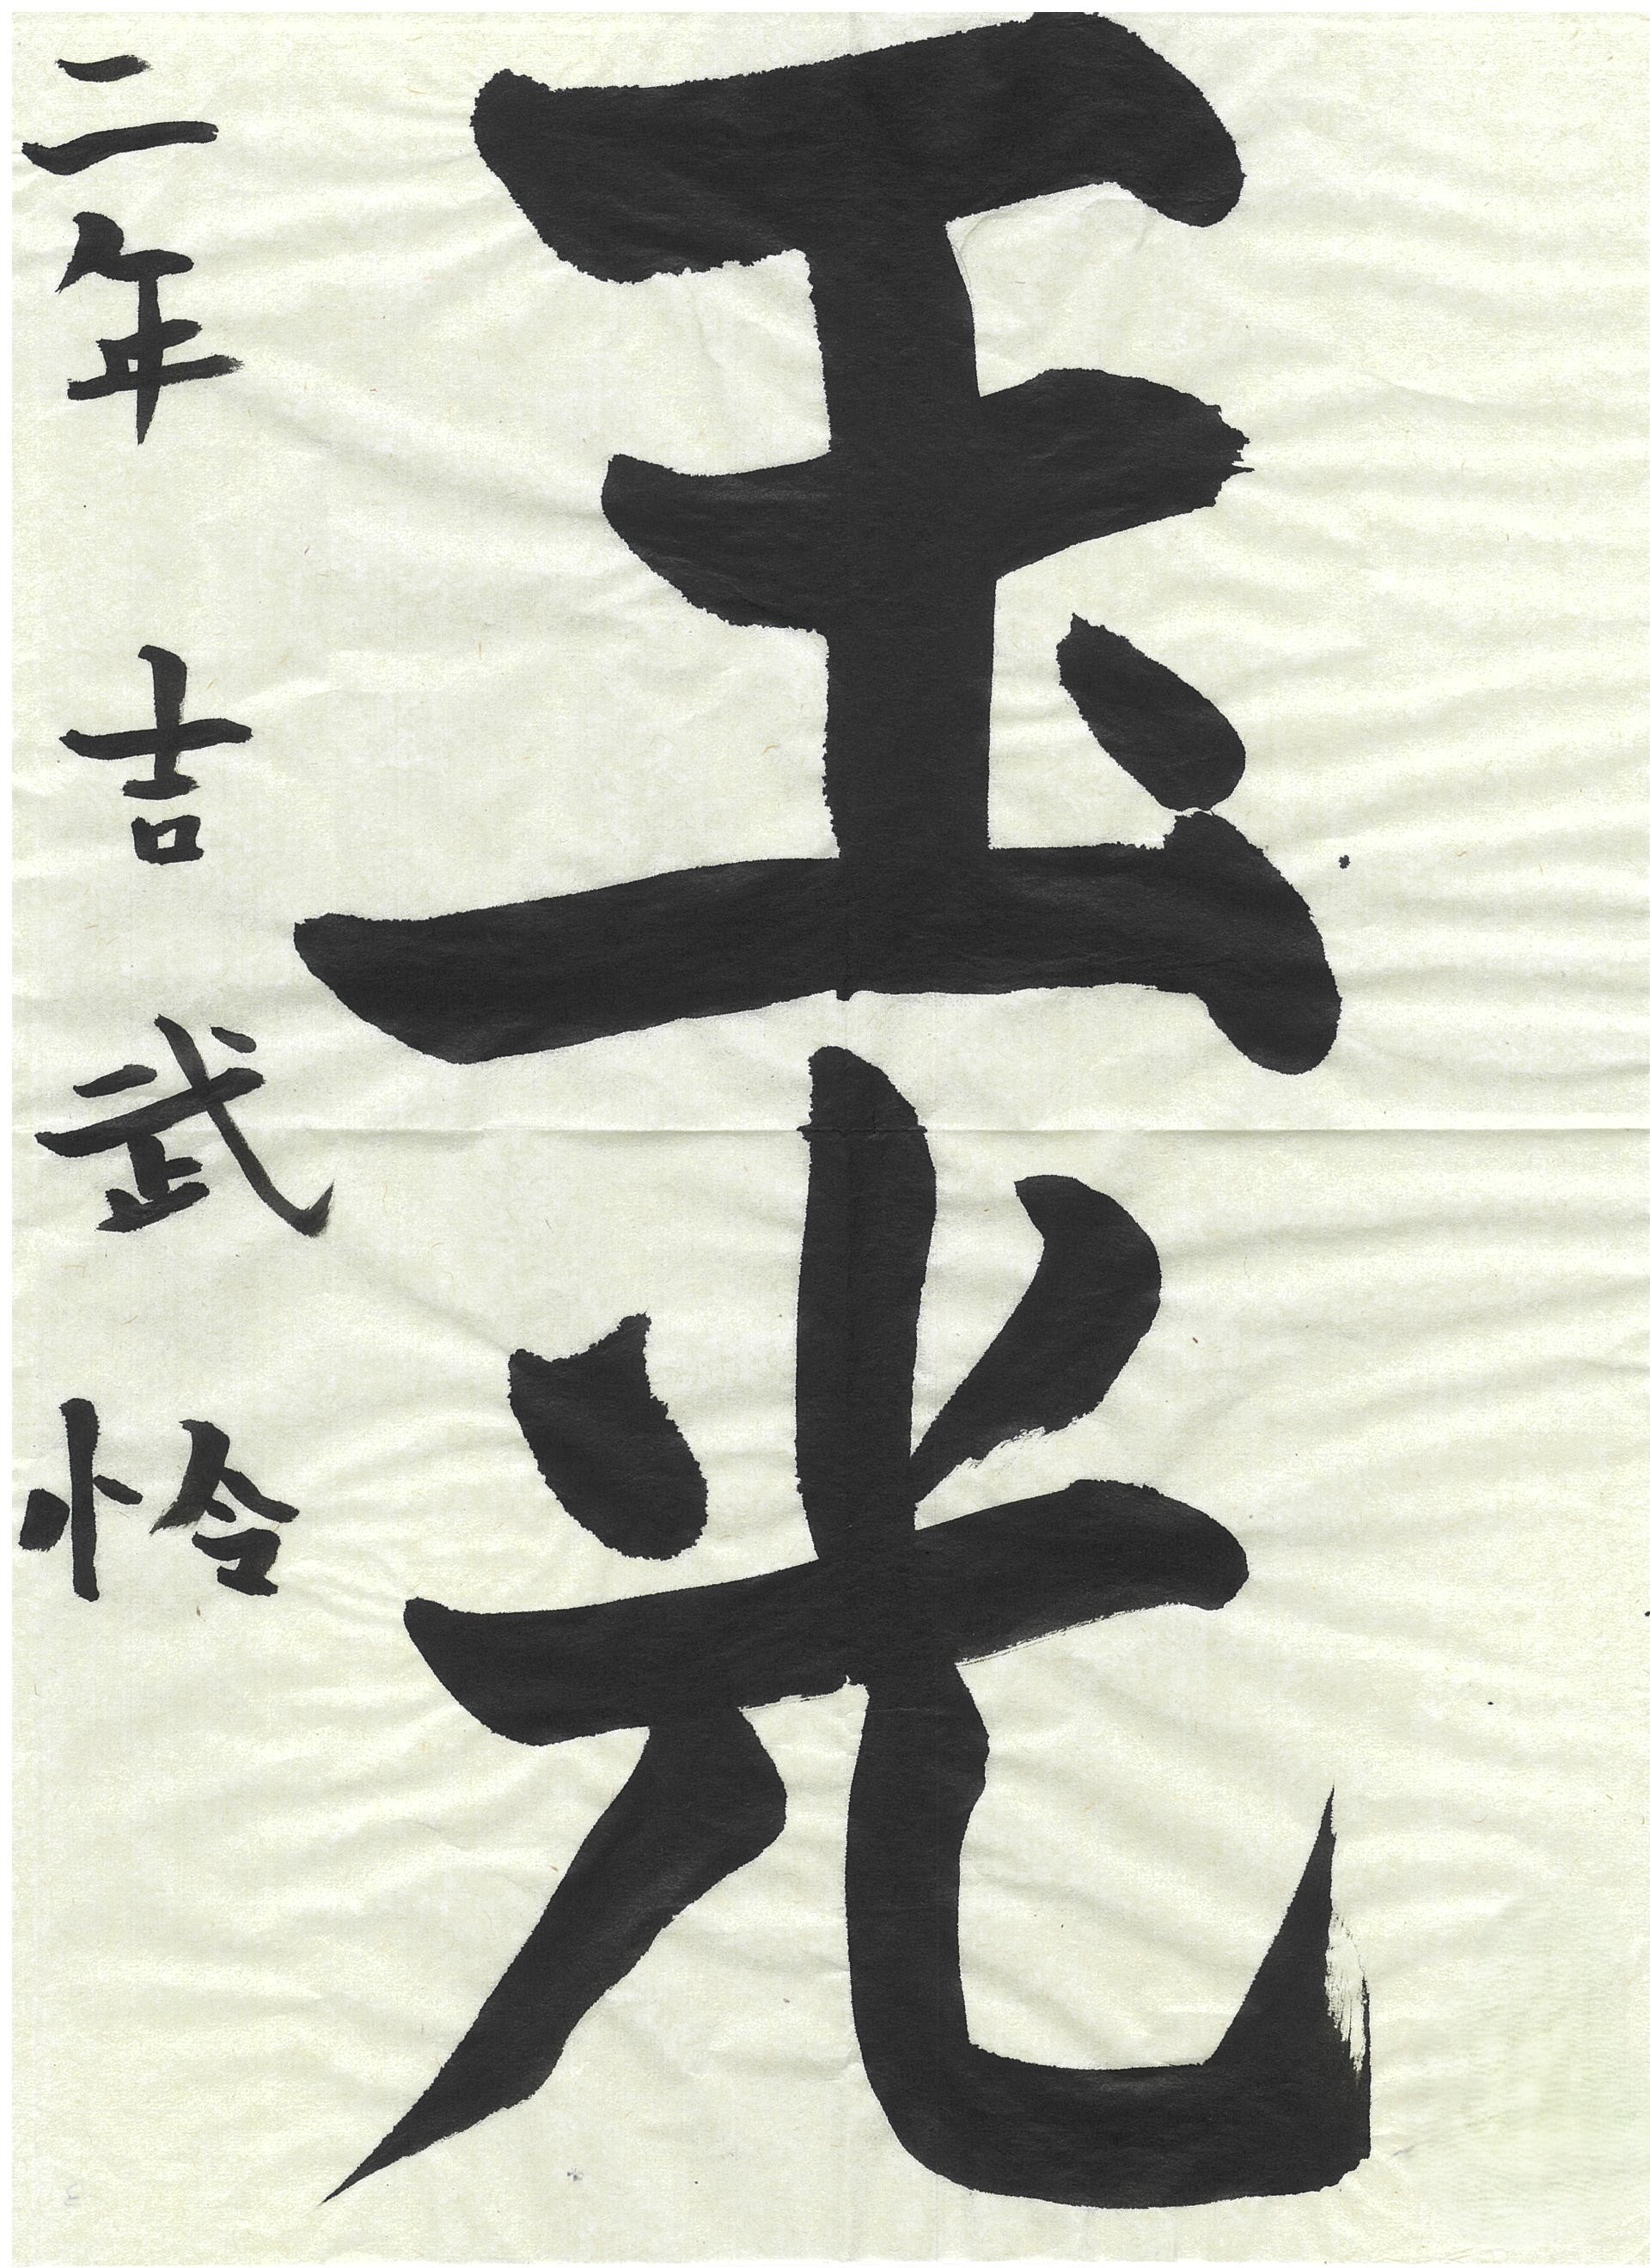 玉光
二年 吉武怜